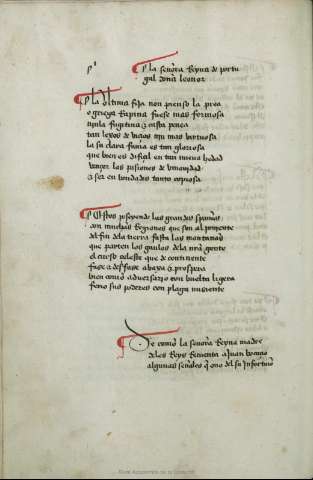 la señora Reyna de portu
gal doña leonor
la ultima fija non pienso la prea
e griega Rapina fuese mas fermosa
nin la fugitiua e casta penea
tan lexos de vicios nin mas virtuosa
la su clara fama es tan gloriosa
que bien es difiçil en tan nueua hedad
vençer las pasiones de vmanidad
e ser en bondades tanto copiosa
Estos poseyendo las grandes españas
con muchas Regiones que son al poniente
del fin de la tierra fasta las montañas
que parten los galos de la nra gente
el curso celeste que de continente
faze e desfaze abaxa e prospera
bien como aduersario con buelta ligera
firio sus poderes con plaga nuziente
De como la señora Reyna madre
delos Reys Recuenta a Juan bocaçio
algunas señales q ouo del su Infortunio